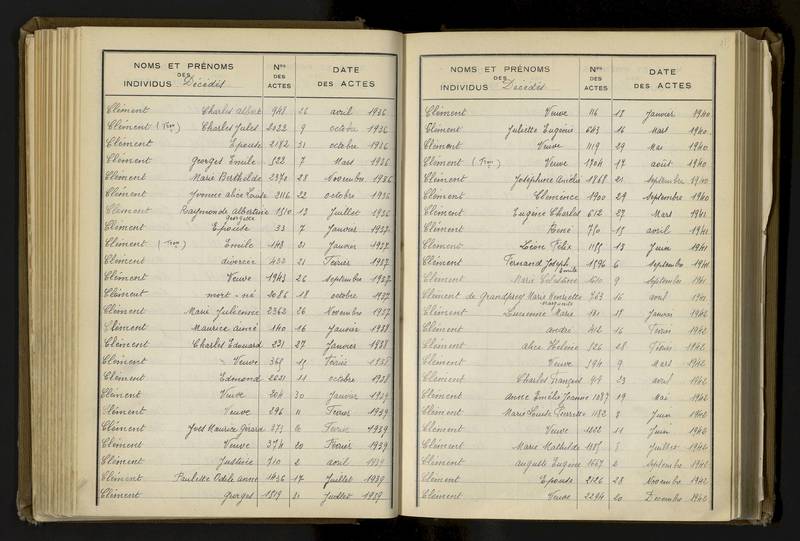 NOMS ET PRÉNOMS DES INDIVIDUS Décédés Nos DES ACTES DATE DES ACTES
Clément Charles Albert 943 26 avril 1936
Clément (Tron) Charles Jules 2022 9 octobre 1936
Clément Epouse 2182 31 octobre 1936
Clément Georges Emile 522 7 Mars 1936
Clément Marie Berthilde 2370 28 Novembre 1936
Clément Yvonne alice Louise 2116 22 octobre 1936
Clément Raymonde Albertine Georgette 1510 13 Juillet 1936
Clément Epouse 33 7 Janvier 1937
Clément (Tron) Emile 143 21 Janvier 1937
Clément divorcée 422 21 Février 1937
Clément Veuve 1943 26 Septembre 1937
Clément mort-né 2086 18 octobre 1937
Clément Marie Julienne 2362 26 Novembre 1937
Clément Maurice aimé 140 16 Janvier 1938
Clément Charles Edouard 231 27 Janvier 1938
Clément Veuve 365 15 Février 1938
Clément Edmond 2031 11 octobre 1938
Clément Veuve 204 30 Janvier 1939
Clément Veuve 296 11 Février 1939
Clément Yves Maurice Gérard 275 6 Février 1939
Clément Veuve 374 20 Février 1939
Clément Justine 710 2 avril 1939
Clément Paulette Odile anne 1436 17 Juillet 1939
Clément Georges 1519 31 Juillet 1939
NOMS ET PRÉNOMS DES INDIVIDUS Décédés Nos DES ACTES DATE DES ACTES
Clément Veuve 116 13 Janvier 1940
Clément Juliette Eugénie 643 16 Mars 1940
Clément Veuve 1119 29 Mai 1940
Clément (Tron) Veuve 1704 17 août 1940
Clément Joséphine Amélie 1868 21 Septembre 1940
Clément Clémence 1900 29 Septembre 1940
Clément Eugène Charles 612 27 Mars 1941
Clément René 750 15 avril 1941
Clément Léon Félix 1155 13 Juin 1941
Clément Fernand Joseph Emile 1596 6 Septembre 1941
Clément Marie 1610 9 Septembre 1941
Clément de Grandprey Marie Henriette Marguerite 763 16 avril 1941
Clément Lucienne Marie 131 18 Janvier 1942
Clément andré 412 16 Février 1942
Clément alice Hélène 526 28 Février 1942
Clément Veuve 594 9 Mars 1942
Clément Charles François 919 23 avril 1942
Clément Anne Emélie Jeanne 1087 19 Mai 1942
Clément Marie Louise Pierrette 1182 8 Juin 1942
Clément Veuve 1222 11 Juin 1942
Clément Marie Mathilde Juillet 1942
Clément auguste Eugène 1667 2 Septembre 1942
Clément Epouse 2126 28 Novembre 1942
Clément Veuve 2294 20 Décembre 1942